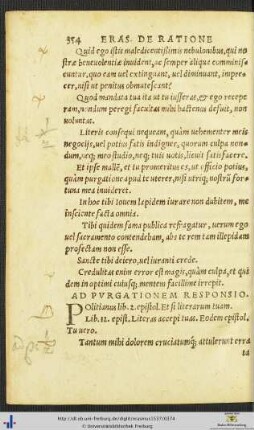 354 ERAS. DE RATIONE
Quid ego istis maledicentissimis nebulonibus, qui no
stræ beneuolentiæ inuident, ac semper aliquid comminiscuntur, quo eam uel extinguant, uel diminuant, imprecer, nisi ut penitus obmutescant?
Quod mandata tua ita ut tu iusseras, & ego recepe
ram, nondum peregi facultas mihi hactenus defuit, non
uoluntas.
Literis consequi nequeam, quàm uehementer meis
negocijs, uel potius fatis indigner, quorum culpa non-
dum, neq; meo studio, neq; tuis uotis, licuit satisfacere.
Et ipse mallē, et tu promeritus es, ut officio potius,
quàm purgatione apud te uterer, nisi utriq; nostrū for-
tuna mea inuideret.
In hoc tibi Iouem lapidem iurare non dubitem, me
insciente facta omnia.
Tibi quidem fama publica refragatur, uerum ego
uel sacramento contendebam, abs te rem tam illepidam
profectam non esse.
Sancte tibi deiero, uel iuranti crede.
Credulitas enim error est magis, quàm culpa, et qui
dem in optimi cuiusq; mentem facillime irrepit.
AD PVRGATIONEM RESPONSIO.
POlitianus lib. 2. epistol. Et si literarum tuarum.
Lib. 12. epist. Literas accepi tuas. Eodem epistol.
Tu uero.
Tantum mihi dolorem cruciatumq; attulerunt erra
ta
http://dl.ub.uni-freiburg.de/diglit/
© Universitätsbibliothek Freiburg